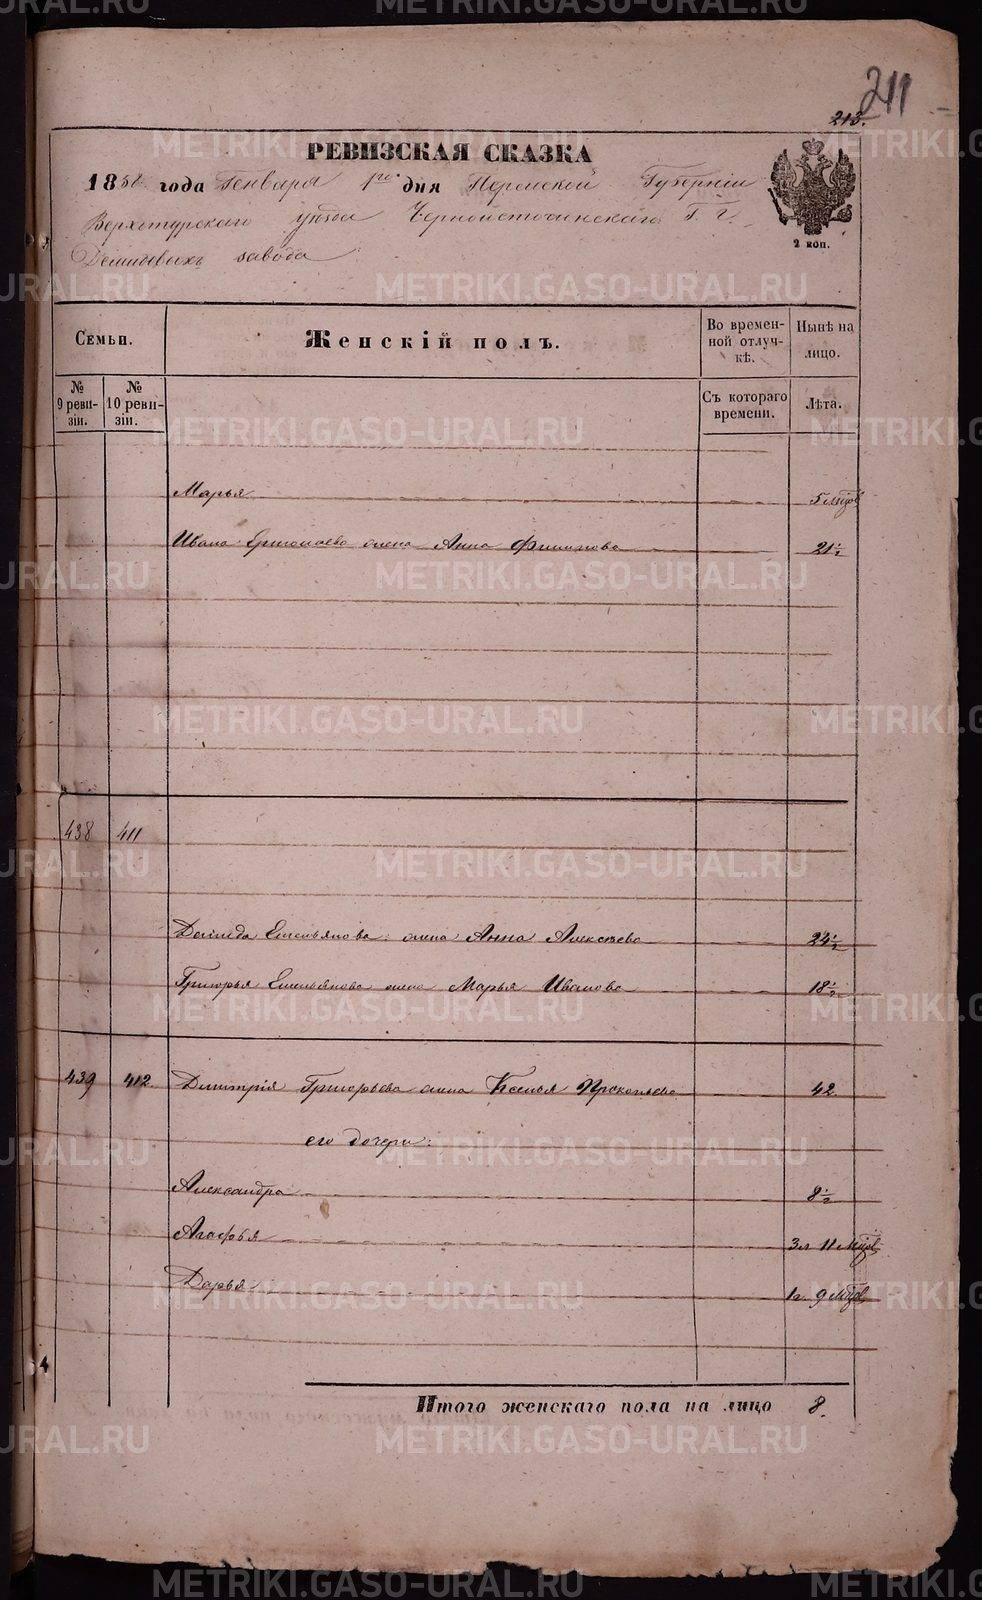 211
213.
РЕВИЗСКАЯ СКАЗКА
1858 года Генваря 1го дня Пермской Губерніи
Верхотурскаго уѣзда Черноисточинскаго Г. г.
Демидовыхъ завода
2 коп.
Семьи.
Женскій полъ.
Во времен-
ной отлуч-
кѣ.
Нынѣ на
лицо.
№
9 реви-
зіи.
№
10 реви-
зіи.
Съ котораго
времени.
Лѣта.
Марья 5 мѣцов
Ивана жена Анна Филипова 21 1/2
438 411
Демида Емельянова жена Анна Алексѣева 24 1/2
Григорья Емельянова жена Марья Иванова 18 1/2
439 412 Дмитрія Григорьева жена Ксенья Прокопьева 42.
его дочери:
Александра 8 1/2
Агафья 3 л 11 мѣцов
Дарья 1 г. 9 мѣцов
Итого женскаго пола на лицо 8.
METRIKI.GASO-URAL.RU